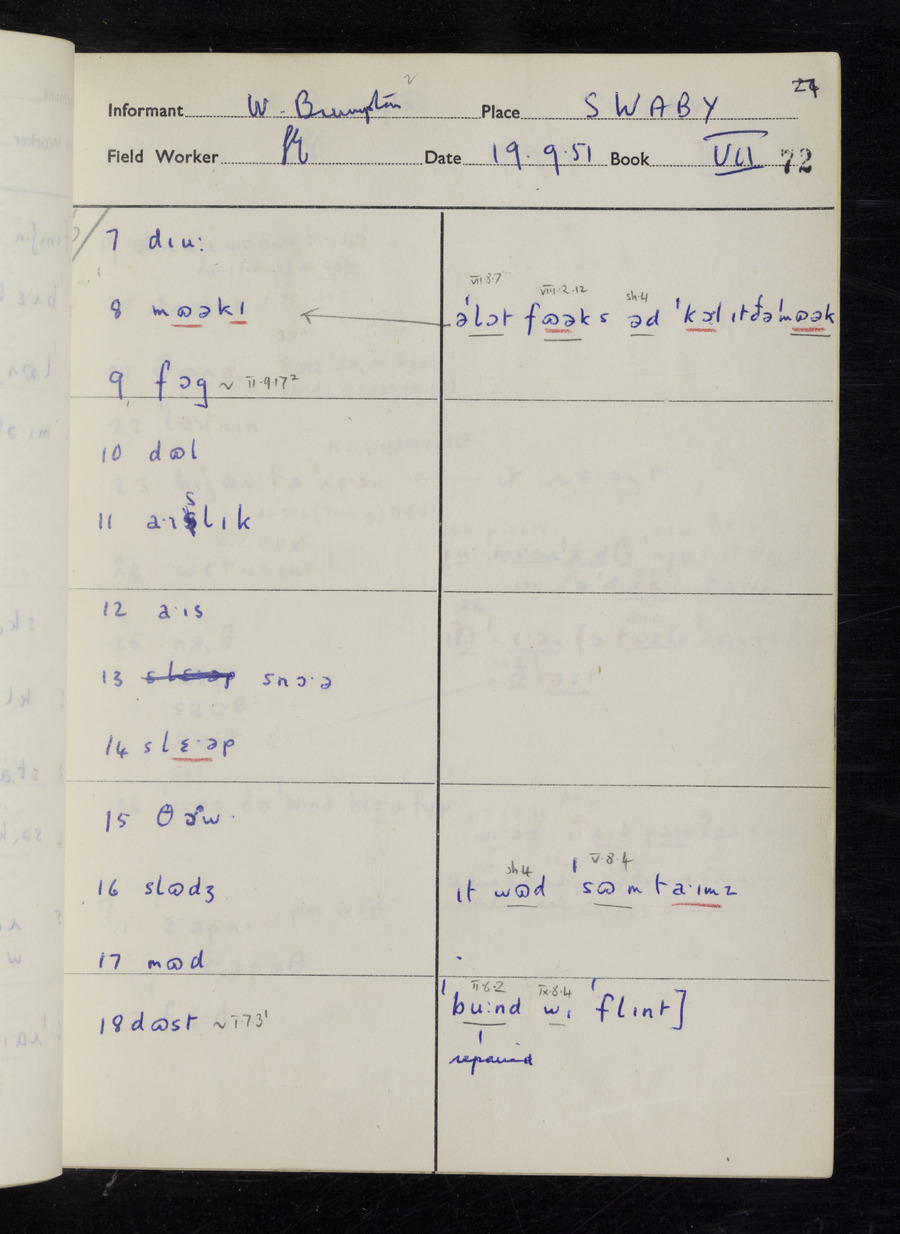 24
Informant W. Brumpton Place SWABY
Field Worker Date 19.9.51 Book VII 72
7 dɪu:
VII.8.7 VIII.2.12 sh.4
8 mɷəkɪ ə'lɔt fɷəks əd 'kɔl ɪt ðə 'mɷək
9 fɔg ~ II.9.17²
10 dɷl
11 a·ɪslɪk
12 a·ɪs
13 snɔ·ə
14 slɛ·əp
15 θɔw
sh.4 V.8.4
16 slɷdʒ ɪt wɷd 'sɷmta·ɪmz
17 mɷd
II.6.2 IX.8.4
18 dɷst ~ I.7.3¹ 'bu:nd wɪ 'flɪnt]
repaired